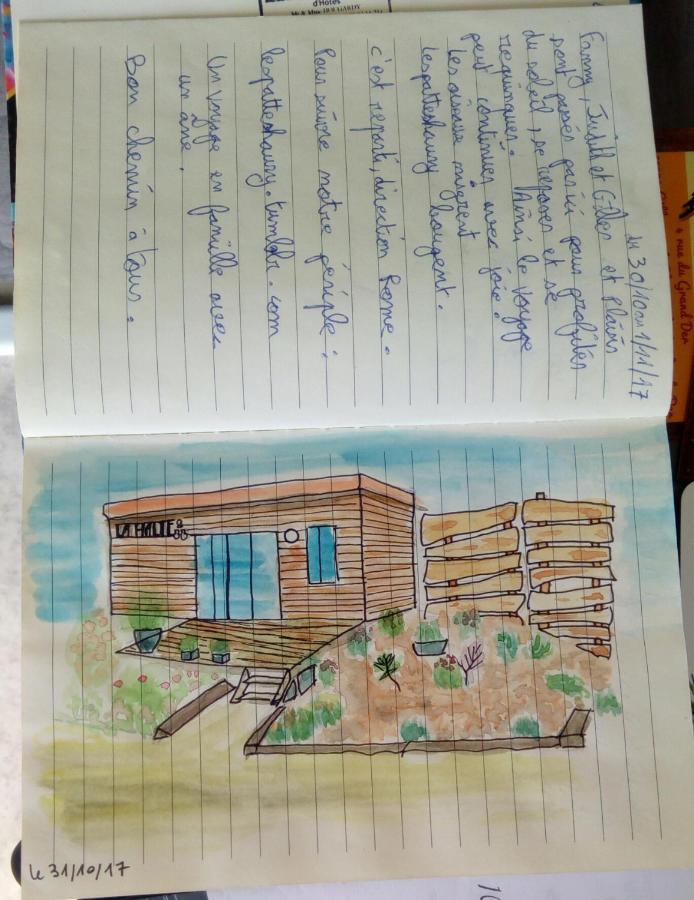 du 30/10 au 1/11/17
Fanny, Judith et Gilles et
sont passés par ici pour profiter
du soleil, se reposer et se
requinquer. Ainsi le voyage
peut continuer avec joie.
Les oiseaux migrent
lespattesbougent.
c'est reparti, direction Rome.
Pour suivre notre périple :
.tumblr.com
Un voyage en famille avec
un âne.
Bon chemin à tous.
LA HALTE
le 31/10/17
d'Hôtes
4 rue du Grand